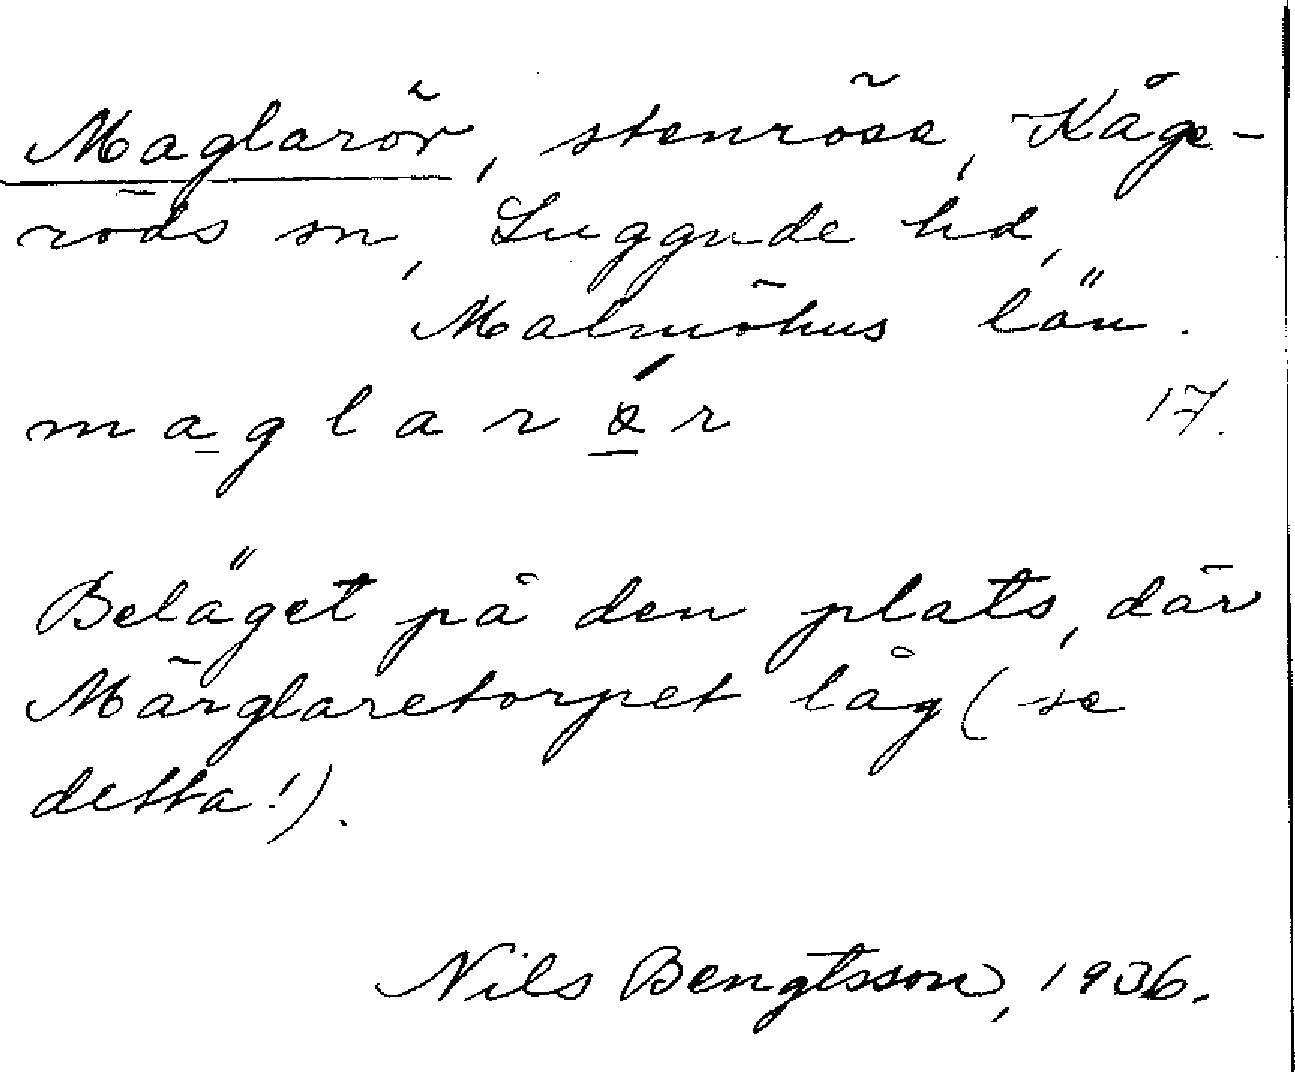 Maglarör, stenröse, Kåge-
röds sn, Luggude hd,
Malmöhus län.
maglarǿr 17.
Beläget på den plats, där
Märglaretorpet låg (se
detta!).
Nils Bengtsson, 1936.